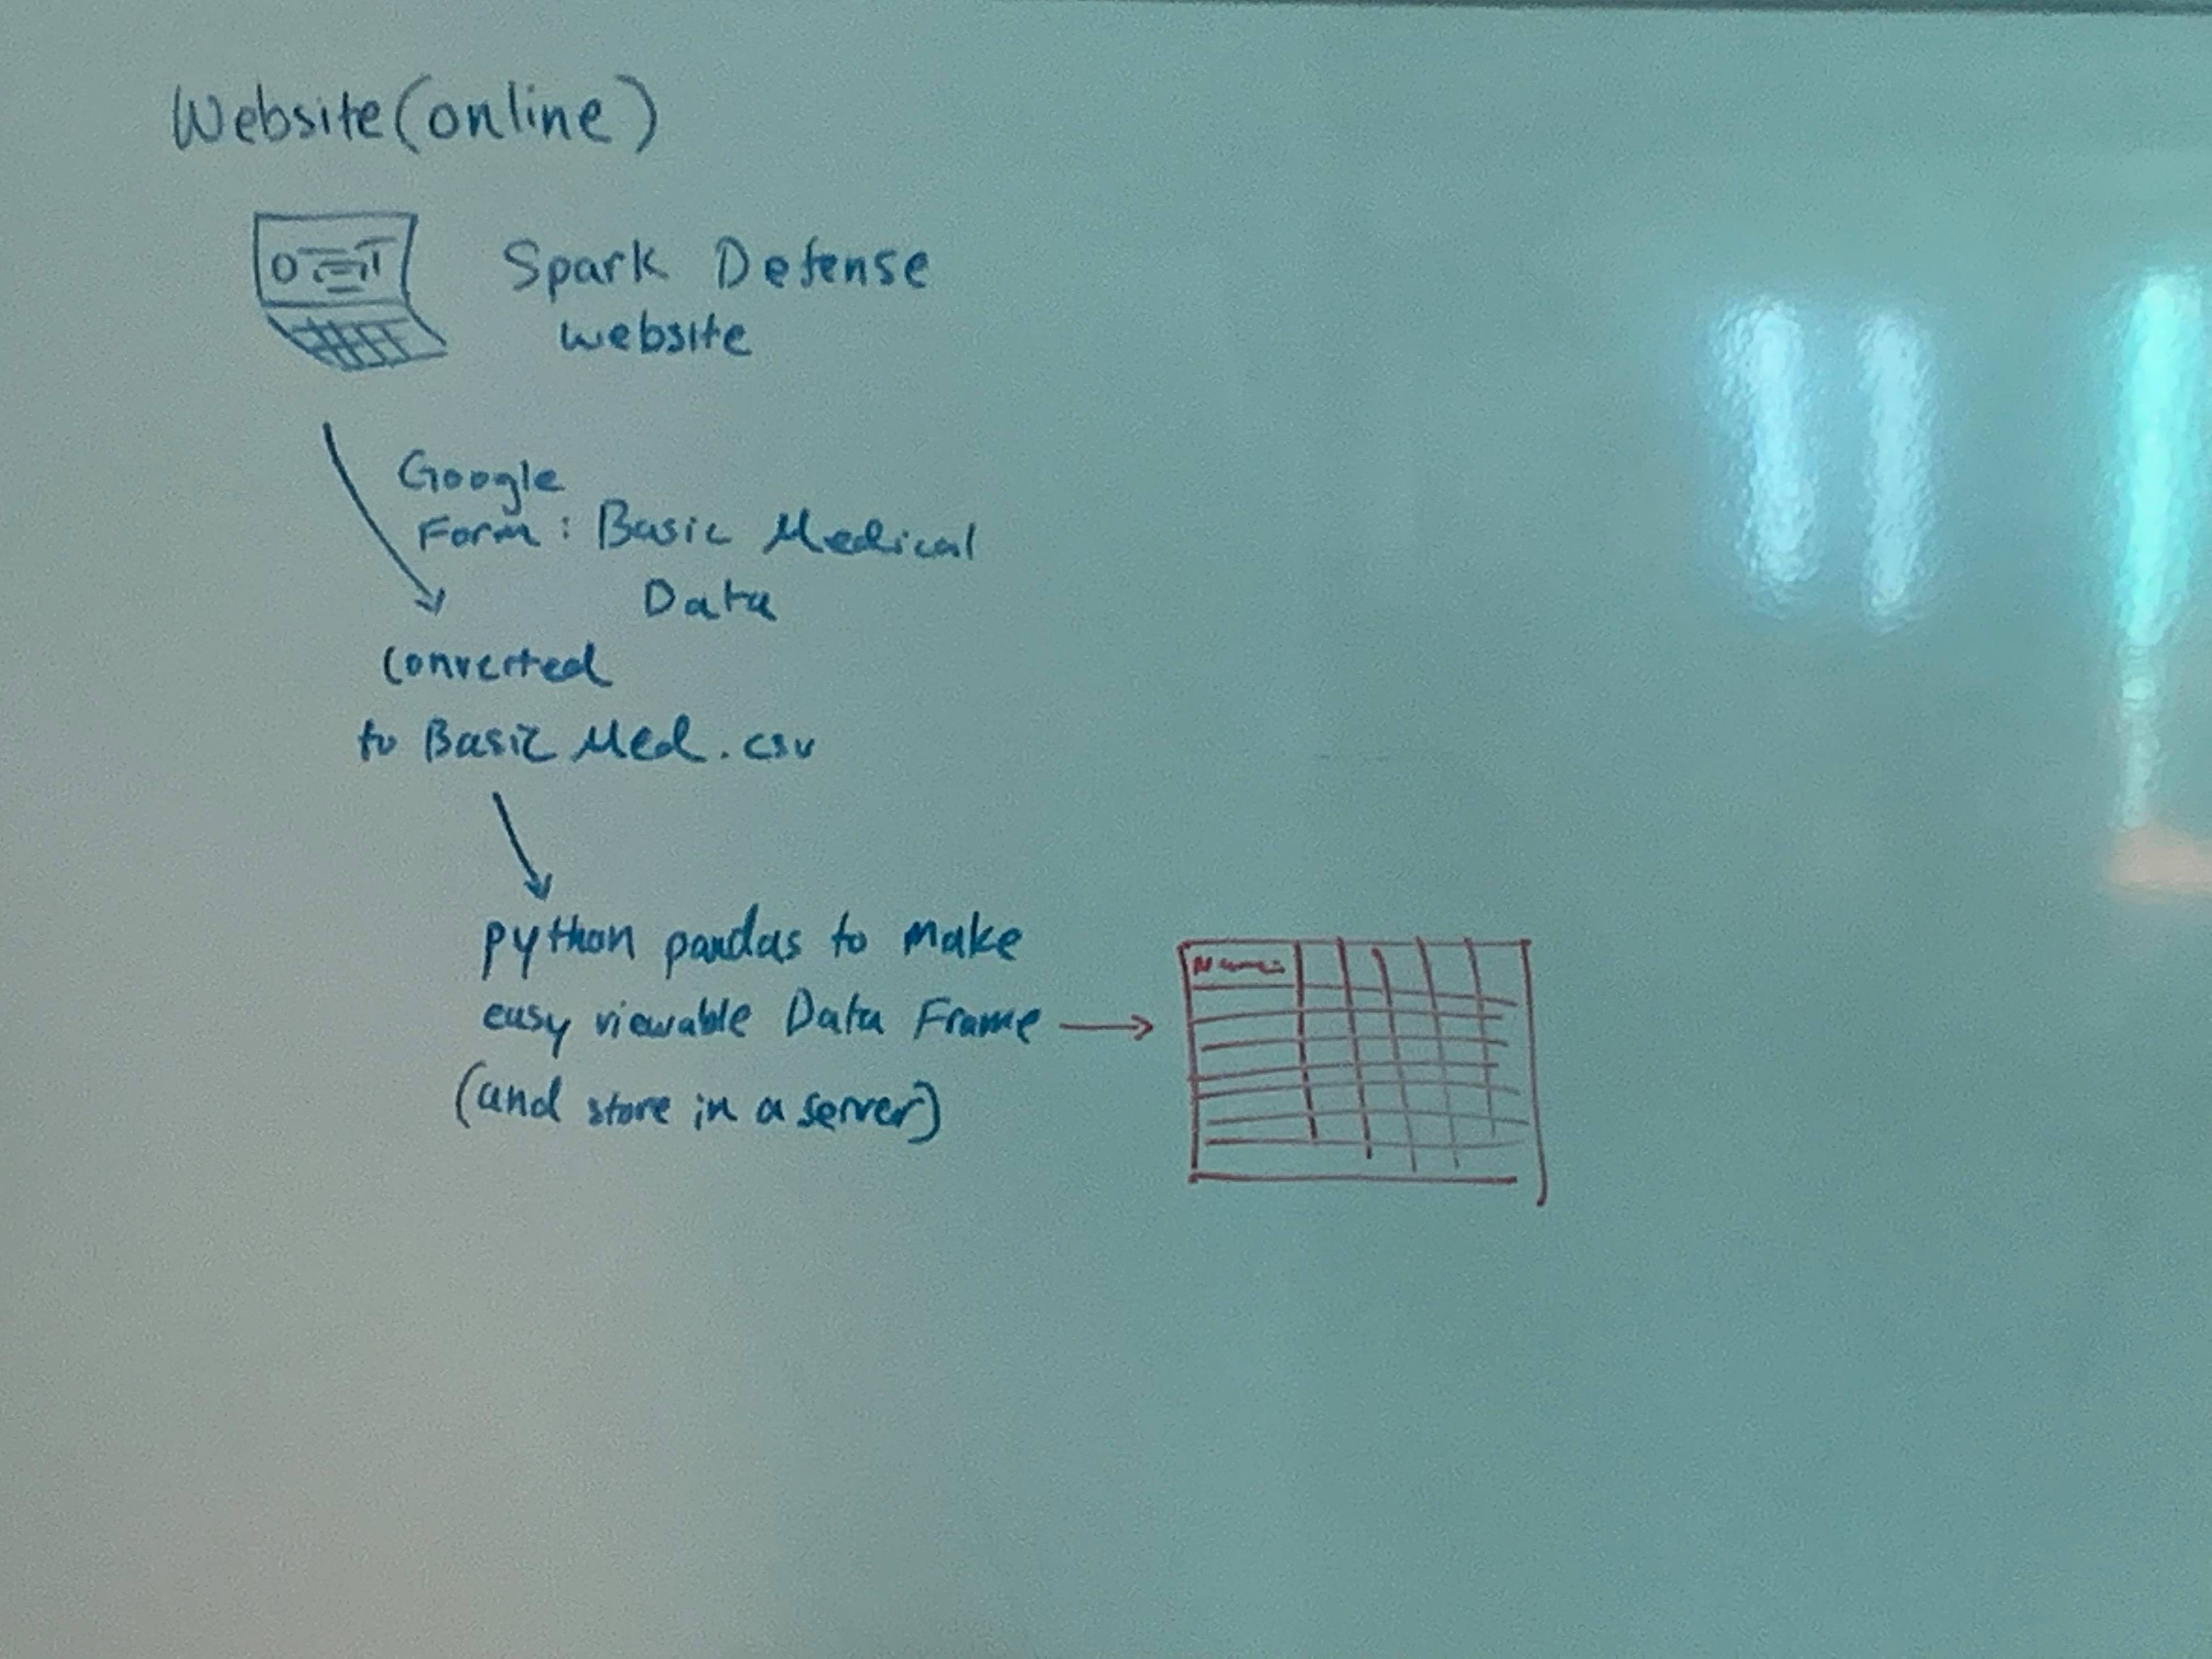 Website (online)
Spark Defense
website
Google
Form: Basic Medical
Data
converted
to Basic Med.csv
python pandas to make
easy viewable Data Frame
(and store in a server)
Name